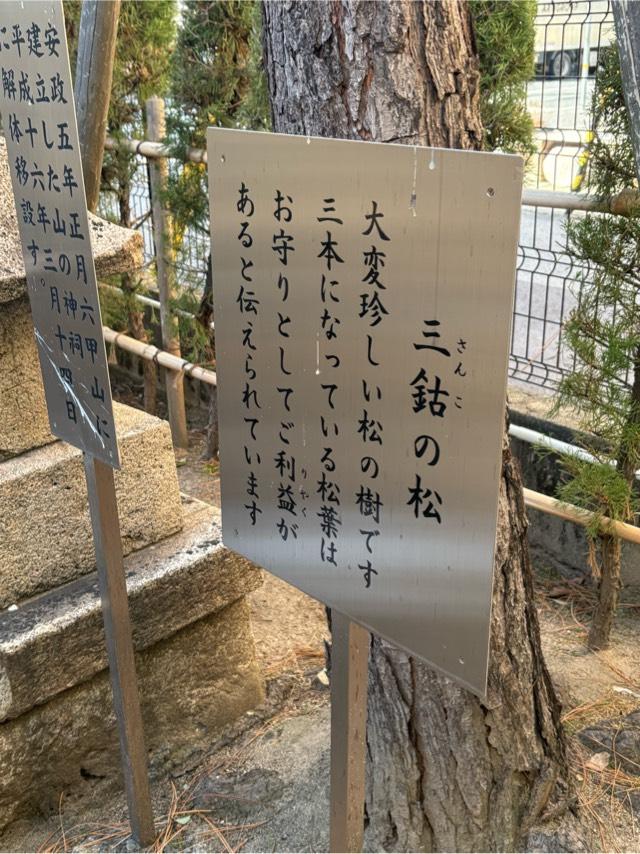 三鈷の松
さんこ
大変珍しい松の樹です
三本になっている松葉は
お守りとしてご利益が
りやく
あると伝えられています
安政五年正月六甲山に
建立した山の神祠
平成十六年三月十四日
に解体移設す。